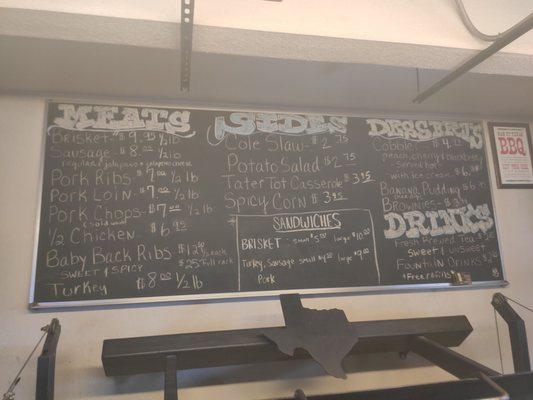 MEATS
Brisket - $9.95 1/2 lb
Sausage - $8.00 1/2 lb
regular & jalapeno & jalapeno cheese
Pork Ribs $7.00 1/2 lb
Pork Loin - $7.00 1/2 lb
Pork Chops - $7.00 1/2 lb
1/2 Chicken - $6.95
Baby Back Ribs $12.50 1/2 rack
SWEET & SPICY $25.00 full rack
Turkey $8.00 1/2 lb
SIDES
Cole Slaw - $2.75
Potato Salad $2.75
Tater Tot Casserole $3.95
Spicy Corn $3.95
SANDWICHES
BRISKET - small $5.00 large $10.00
Turkey, Sausage small large $9.00
Pork
DESSERTS
Cobbler - $4.00
peach, cherry & blackberry
- served hot -
with ice cream $6.00
Banana Pudding
Brownies - $3.
DRINKS
Fresh Brewed Tea
sweet & unsweet
Fountain Drinks
* Free refills
BBQ